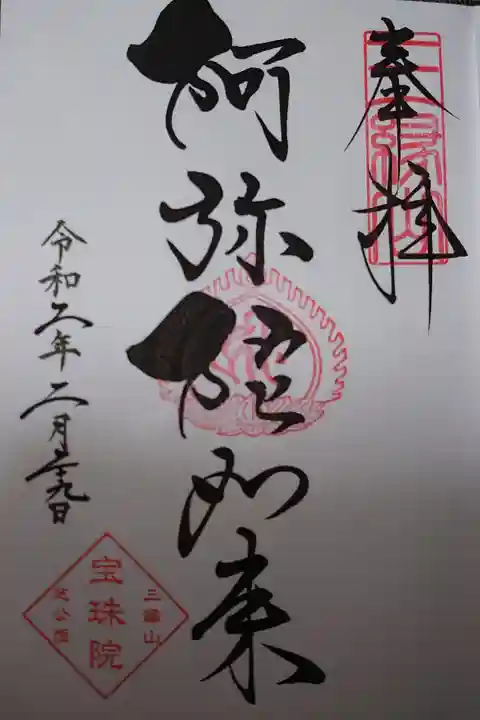 奉拝
阿弥陀如来
令和二年二月二十九日
三縁山
宝珠院
芝公園